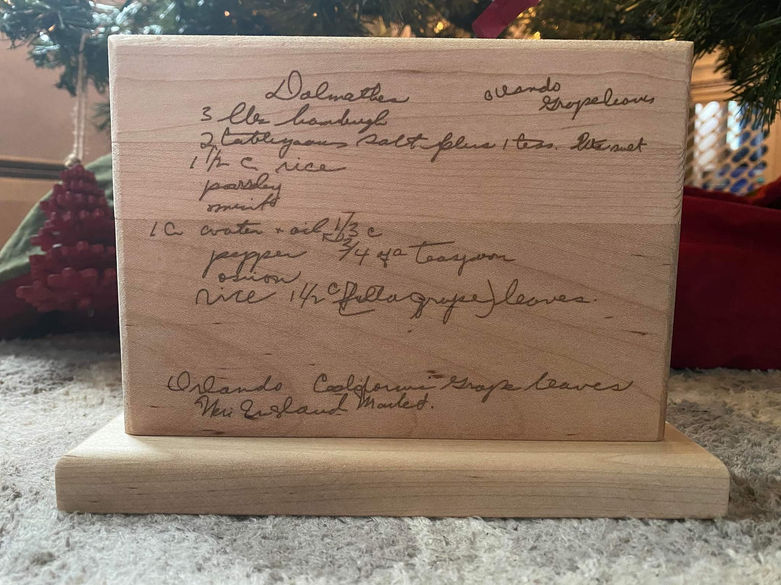 Dolmathes
Orlando
Grapeleaves
3 lbs hamburgh
2 tablespoons salt plus 1 teas.
1 1/2 c rice
parsley
mint
1 c water + oil 1/3 c
pepper 3/4 of a teaspoon
onion
rice 1 1/2 c (fills grape) leaves.
Orlando California Grape Leaves
New England Market.